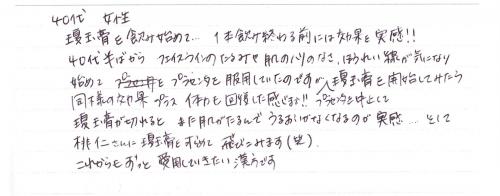 40代 女性
瓊玉膏を飲み始めて… 1本飲み終わる前には効果を実感!!
40代半ばから フェイスラインのたるみや肌のハリのなさ、ほうれい線が気になり
始めて プラセンタを服用していたのですが、瓊玉膏を開始してみたら
同様の効果 プラス 体力も回復した感じがします!! プラセンタを中止して
瓊玉膏が切れると また肌がたるんで うるおいがなくなるのが実感… そして
桃仁さんに 瓊玉膏を求めて 飛びこみます(笑)
これからもずっと 愛用していきたい漢方です